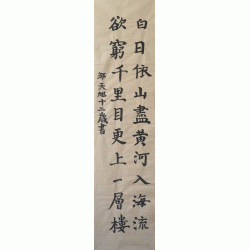 白日依山盡黄河入海流
欲窮千里目更上一層樓
鄧天旭十二歲書